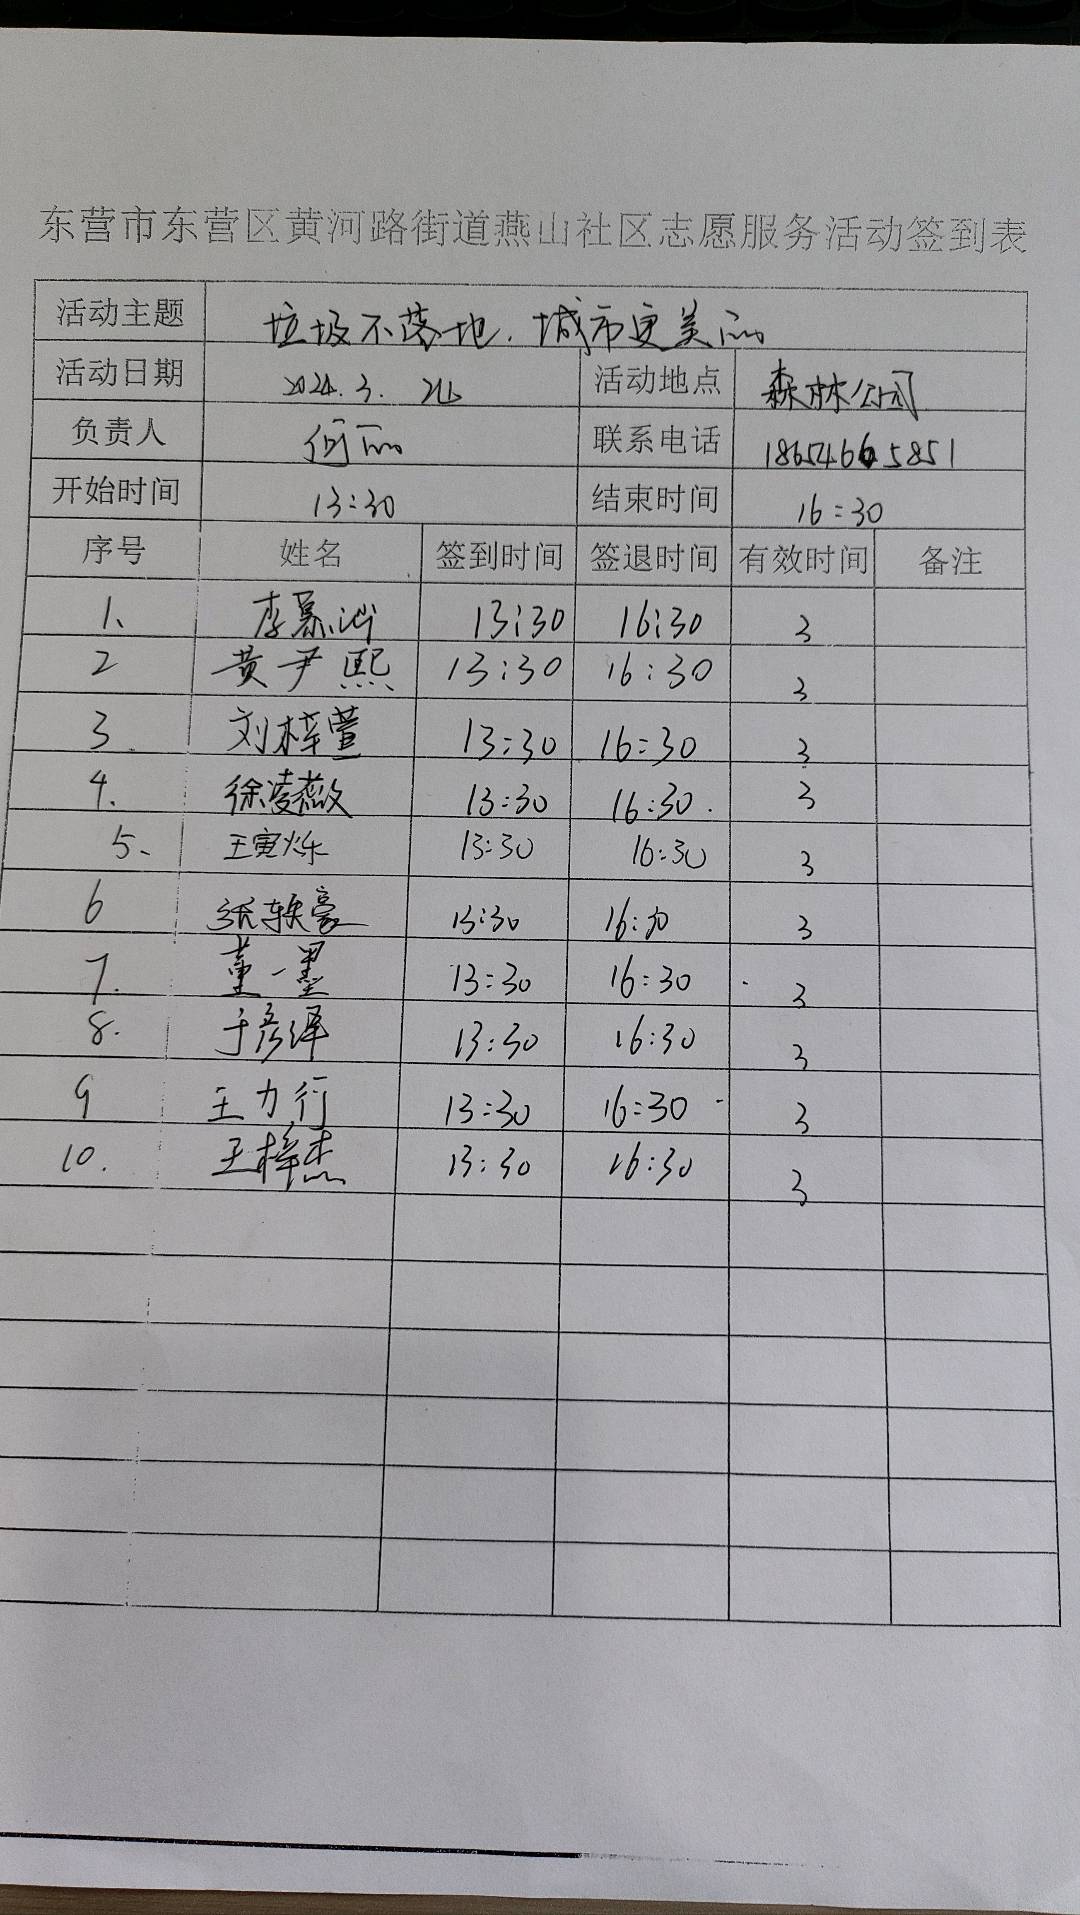 东营市东营区黄河路街道燕山社区志愿服务活动签到表
活动主题 垃圾不落地.城市更美丽
活动日期 2024.3. 活动地点 森林公园
负责人 何丽 联系电话 18654665851
开始时间 13:30 结束时间 16:30
序号 姓名 签到时间 签退时间 有效时间 备注
1、 李慕 13:30 16:30 3
2 黄尹熙 13:30 16:30 3
3. 刘梓萱 13:30 16:30 3
4. 徐凌薇 13:30 16:30. 3
5、 王寅烁 13:30 16:30 3
6 张轶豪 13:30 16:30 3
7. 董一墨 13:30 16:30 3
8. 于彦泽 13:30 16:30 3
9 王力行 13:30 16:30 3
10. 王梓杰 13:30 16:30 3